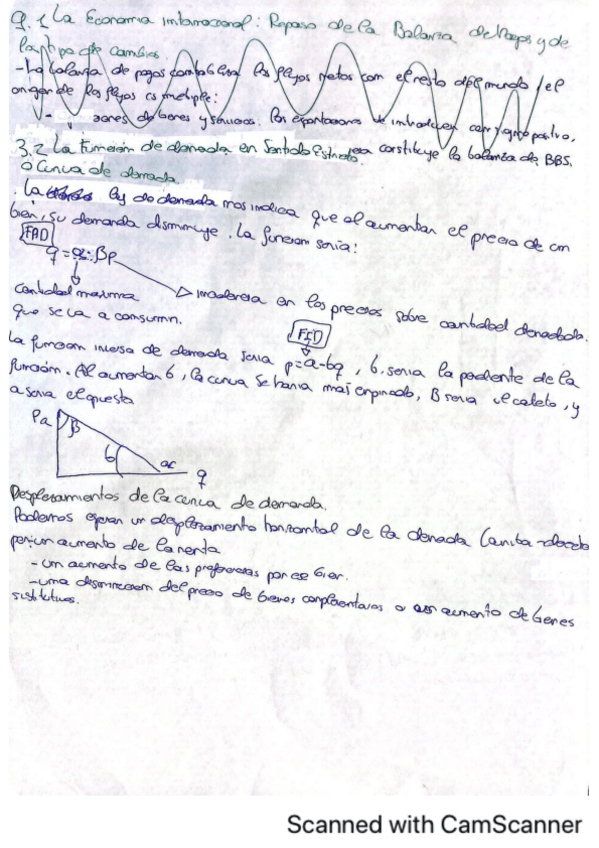 9.1 La Economia internacional: Repaso de la Balanza de Pagos y de
la tipo de cambio.
- La balanza de pagos contabiliza los flujos netos con el resto del mundo, el
origen de los flujos es multiple:
- de bienes y servicios. las exportaciones se introducen con signo positivo,
constituye la balanza de BBS.
3.2 La Función de demanda en Sentido Estricto
o Curva de demanda
. La ley de demanda nos indica que al aumentar el precio de un
bien, su demanda disminuye. La funcion seria:
FAD
q = α - βp
Cantidad maxima
que se va a consumir.
incidencia en los precios sobre cantidad demandada.
FID
La funcion inversa de demanda seria p = a - bq, b. seria la pendiente de la
función. Al aumentar b, la curva se haria mas empinada, B seria el cateto, y
a seria el opuesto
Pa
β
b
α
q
Desplazamientos de la curva de demanda.
Podemos un desplazamiento horizontal de la demanda
por: un aumento de la renta
- un aumento de las preferencias por ese bien.
- una disminucion del precio de bienes complementarios o aumento de bienes
sustitutivos.
Scanned with CamScanner